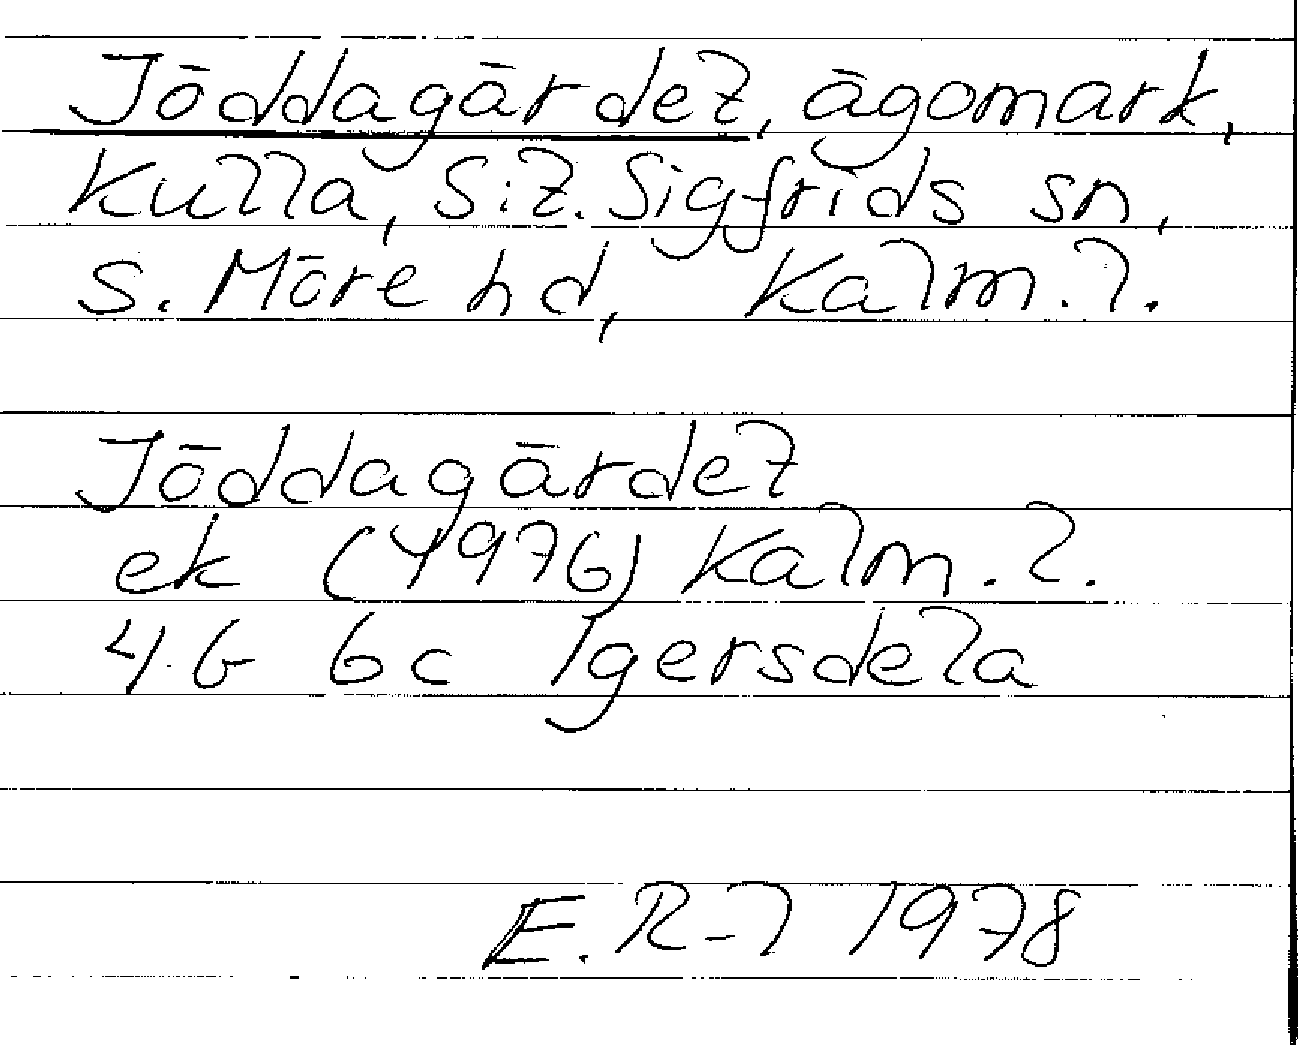 Jöddagärdet, ägomark,
Kulla, S:t. Sigfrids sn,
S. Möre hd, Kalm. l.
Jöddagärdet
ek (1976) Kalm. l.
4 G 6c Igersdela
E. R-l 1978